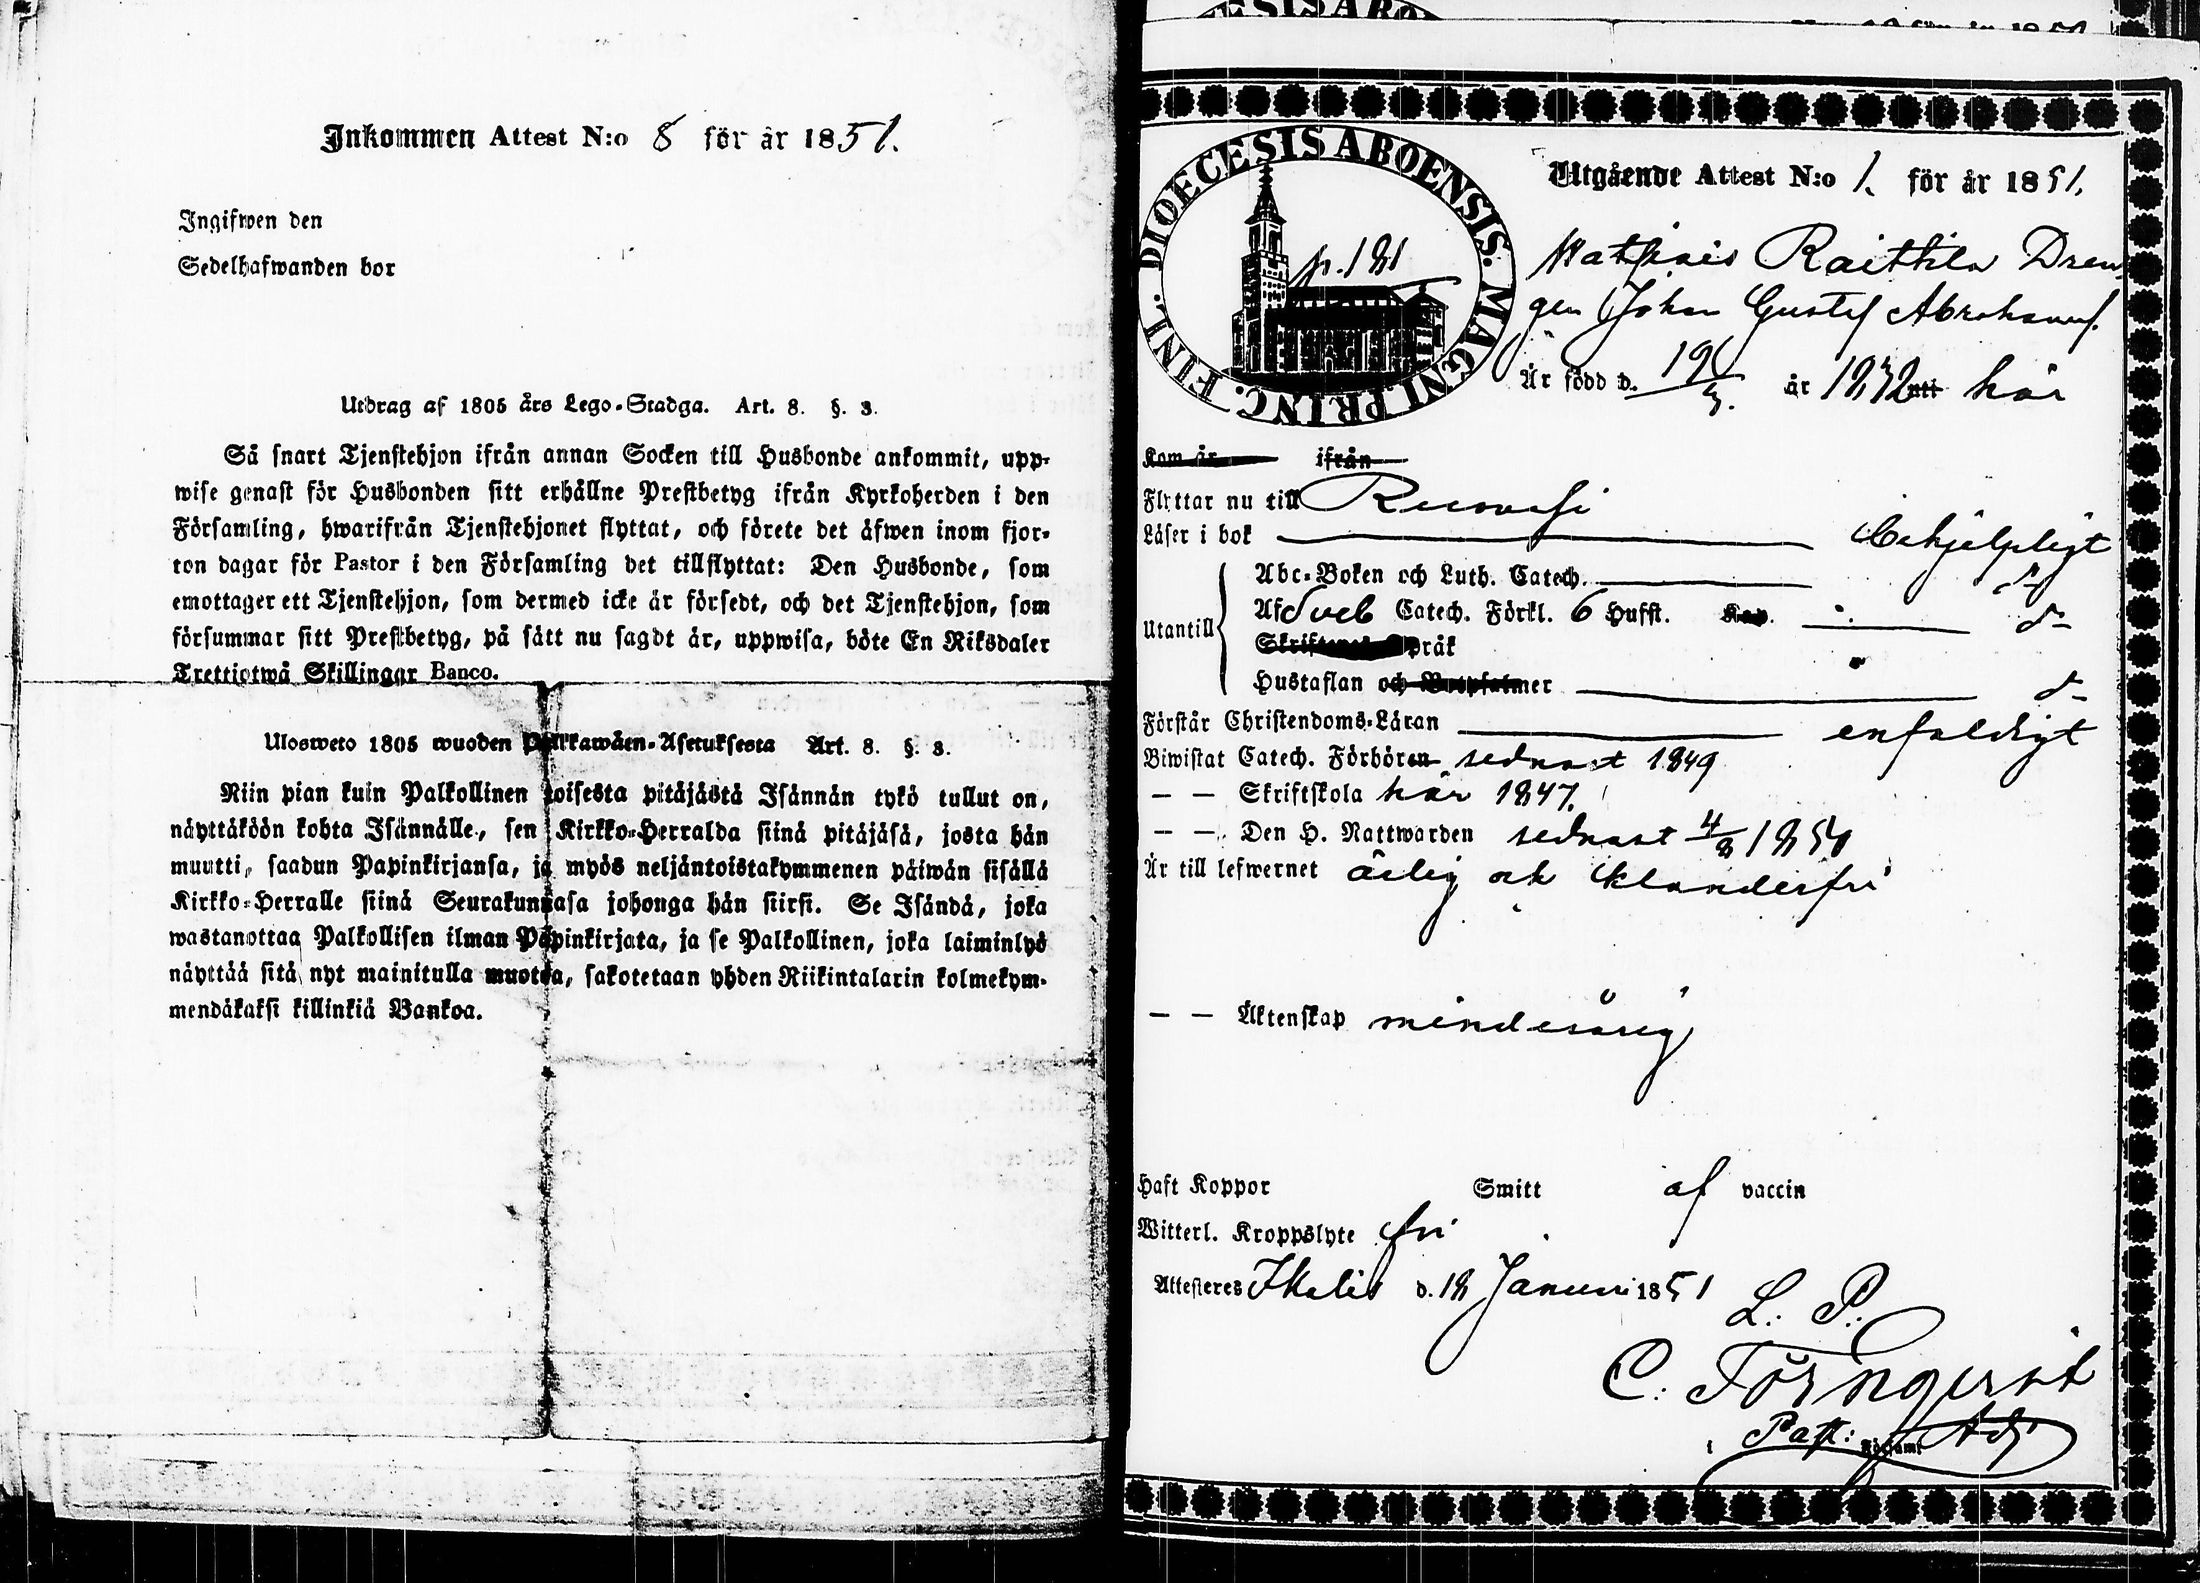 Inkommen Attest N:o 8 för år 1851.
Ingifwen den
Sedelhafwanden bor
Utdrag af 1805 års Lego-Stadga. Art. 8. §. 3.
Så snart Tjenstehjon ifrån annan Socken till Husbonde ankommit, upp-
wise genast för Husbonden sitt erhållne Prestbetyg ifrån Kyrkoherden i den
Församling, hwarifrån Tjenstehjonet flyttat, och förete det äfwen inom fjor-
ton dagar för Pastor i den Församling det tillflyttat: Den Husbonde, som
emottager ett Tjenstehjon, som dermed icke är försedt, och det Tjenstehjon, som
försummar sitt Prestbetyg, på sätt nu sagdt är, uppwisa, böte En Riksdaler
Trettiotwå Skillingar Banco.
Ulosweto 1805 wuoden Palkkawäen-Asetuksesta Art. 8. §. 3.
Niin pian kuin Palkollinen toisesta pitäjästä Isännän tykö tullut on,
näyttäköön kohta Isännälle, sen Kirkko-Herralda siinä pitäjäsä, josta hän
muutti, saadun Papinkirjansa, ja myös neljäntoistakymmenen päiwän sisällä
Kirkko-Herralle siinä Seurakunnasa johonga hän siirsi. Se Isändä, joka
wastanottaa Palkollisen ilman Papinkirjata, ja se Palkollinen, joka laiminlyö
näyttää sitä nyt mainitulla muotoa, sakotetaan yhden Riikintalarin kolmekym-
mendäkaksi killinkiä Bankoa.
DIOECESIS ABOENSIS. MAGNI PRINC. FINL.
p. 181
Utgående Attest N:o 1. för år 1851.
Mathias Raittila Dren-
gen Johan Gustaf Abrahamss.
Är född d. 19/3. år 1832 uti här
Kom år ifrån
Flyttar nu till Ruovesi
Läser i bok behjelpligt
Utantill
Abc-Boken och Luth. Catech. d-
Af Sveb Catech. Förkl. 6 Hufst. Kap. d-
Skriftenes Språk
Hustaflan och Botpsalmer d-
Förstår Christendoms-Läran enfaldigt
Biwistat Catech. Förhören sednast 1849
— — Skriftskola här 1847.
— — Den H. Nattwarden sednast 4/8 1850
Är till lefwernet ärlig och klanderfri
— — Äktenskap minderårig
Haft Koppor Smitt af vaccin
Witterl. Kroppslyte fri
Attesteres Ikalis d. 18 Januari 1851
L. P.
C. Törnqvist
i Past: Församl. Adj.